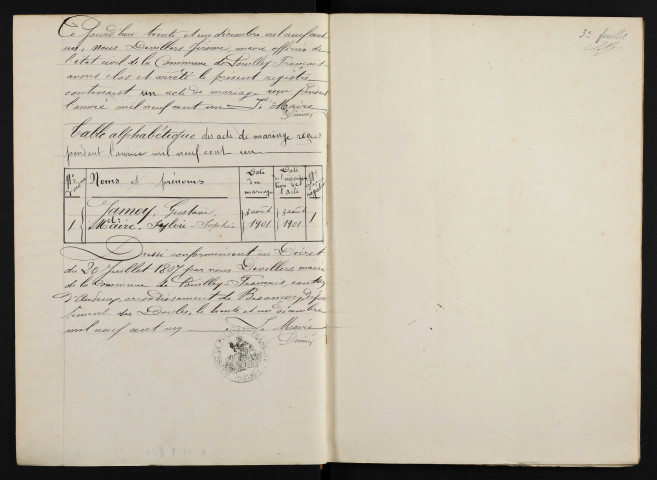 Ce Jourd'hui trente et un décembre mil neuf cent
un, nous Devillers Jérôme, maire officier de
l'état civil de la Commune de Pouilley-Français
avons clos et arrêté le présent registre
contenant un acte de mariage reçu pendant
l'année mil neuf cent un Le Maire
Table alphabétique des acte de mariage reçus
pendant l'année mil neuf cent un
Noms et prénoms Date du mariage Date de l'acte
Jamey, Gustave
1 et 3 août 3 août 1
Maire, Sylvie-Sophie 1901 1901
Dressé conformément au Décret
du 20 Juillet 1807 par nous Devillers maire
de la Commune de Pouilley-Français, canton
d'Audeux, arrondissement de Besançon, Dépar
tement du Doubs, le trente et un décembre
mil neuf cent un Le Maire
3e feuillet